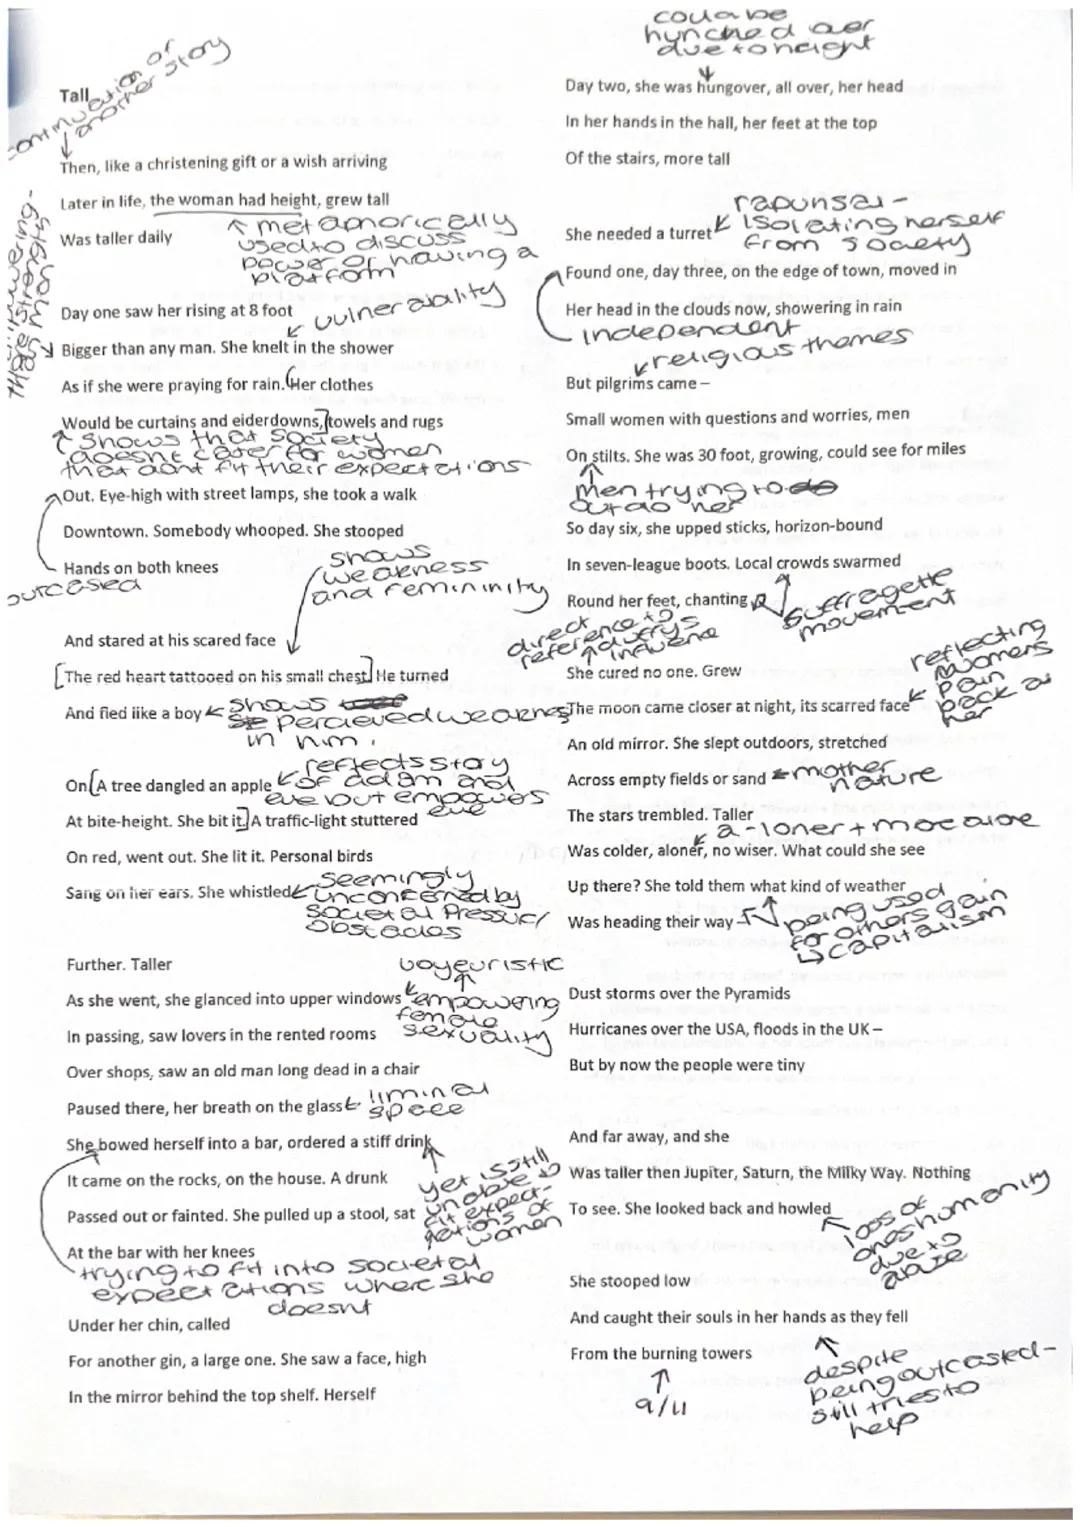 Tall
continuation of
another story
Then, like a christening gift or a wish arriving
Later in life, the woman had height, grew tall
Was taller daily
metaphorically
used to discuss
power or having a
platform
Day one saw her rising at 8 foot
vulnerability
Bigger than any man. She knelt in the shower
As if she were praying for rain. Her clothes
Would be curtains and eiderdowns, towels and rugs
shows that society
doesnt cater for women
that dont fit their expectations
Out. Eye-high with street lamps, she took a walk
Downtown. Somebody whooped. She stooped
Hands on both knees
outcasted
shows
weakness
and femininity
And stared at his scared face
The red heart tattooed on his small chest. He turned
And fled like a boy
shows
percieved weakness
in him.
reflects story
On. A tree dangled an apple
of adam and
eve but empowers
eve
At bite-height. She bit it. A traffic-light stuttered
On red, went out. She lit it. Personal birds
Sang on her ears. She whistled
seemingly
unconcerned by
societal pressure/
obstacles
Further. Taller
voyeuristic
As she went, she glanced into upper windows
empowering
female
sexuality
In passing, saw lovers in the rented rooms
Over shops, saw an old man long dead in a chair
Paused there, her breath on the glass
liminal
space
She bowed herself into a bar, ordered a stiff drink
It came on the rocks, on the house. A drunk
Passed out or fainted. She pulled up a stool, sat
yet is still
unable to
fit expect-
ations of
women
At the bar with her knees
trying to fit into societal
expectations where she
doesnt
Under her chin, called
For another gin, a large one. She saw a face, high
In the mirror behind the top shelf. Herself
could be
hunched over
due to height
Day two, she was hungover, all over, her head
In her hands in the hall, her feet at the top
Of the stairs, more tall
rapunsal -
isolating herself
from society
She needed a turret
Found one, day three, on the edge of town, moved in
Her head in the clouds now, showering in rain
independent
religious themes
But pilgrims came –
Small women with questions and worries, men
On stilts. She was 30 foot, growing, could see for miles
Men trying to
outdo her
So day six, she upped sticks, horizon-bound
In seven-league boots. Local crowds swarmed
Round her feet, chanting
suffragette
movement
direct
reference to
duffy's
influence
She cured no one. Grew
reflecting
womens
pain
back at
her
The moon came closer at night, its scarred face
An old mirror. She slept outdoors, stretched
Across empty fields or sand
mother
nature
The stars trembled. Taller
a-loner + more alone
Was colder, aloner, no wiser. What could she see
Up there? She told them what kind of weather
Was heading their way –
being used
for others gain
capitalism
Dust storms over the Pyramids
Hurricanes over the USA, floods in the UK –
But by now the people were tiny
And far away, and she
Was taller then Jupiter, Saturn, the Milky Way. Nothing
To see. She looked back and howled
loss of
ones humanity
due to
abuse
She stooped low
And caught their souls in her hands as they fell
From the burning towers
9/11
despite
being outcasted -
still tries to
help